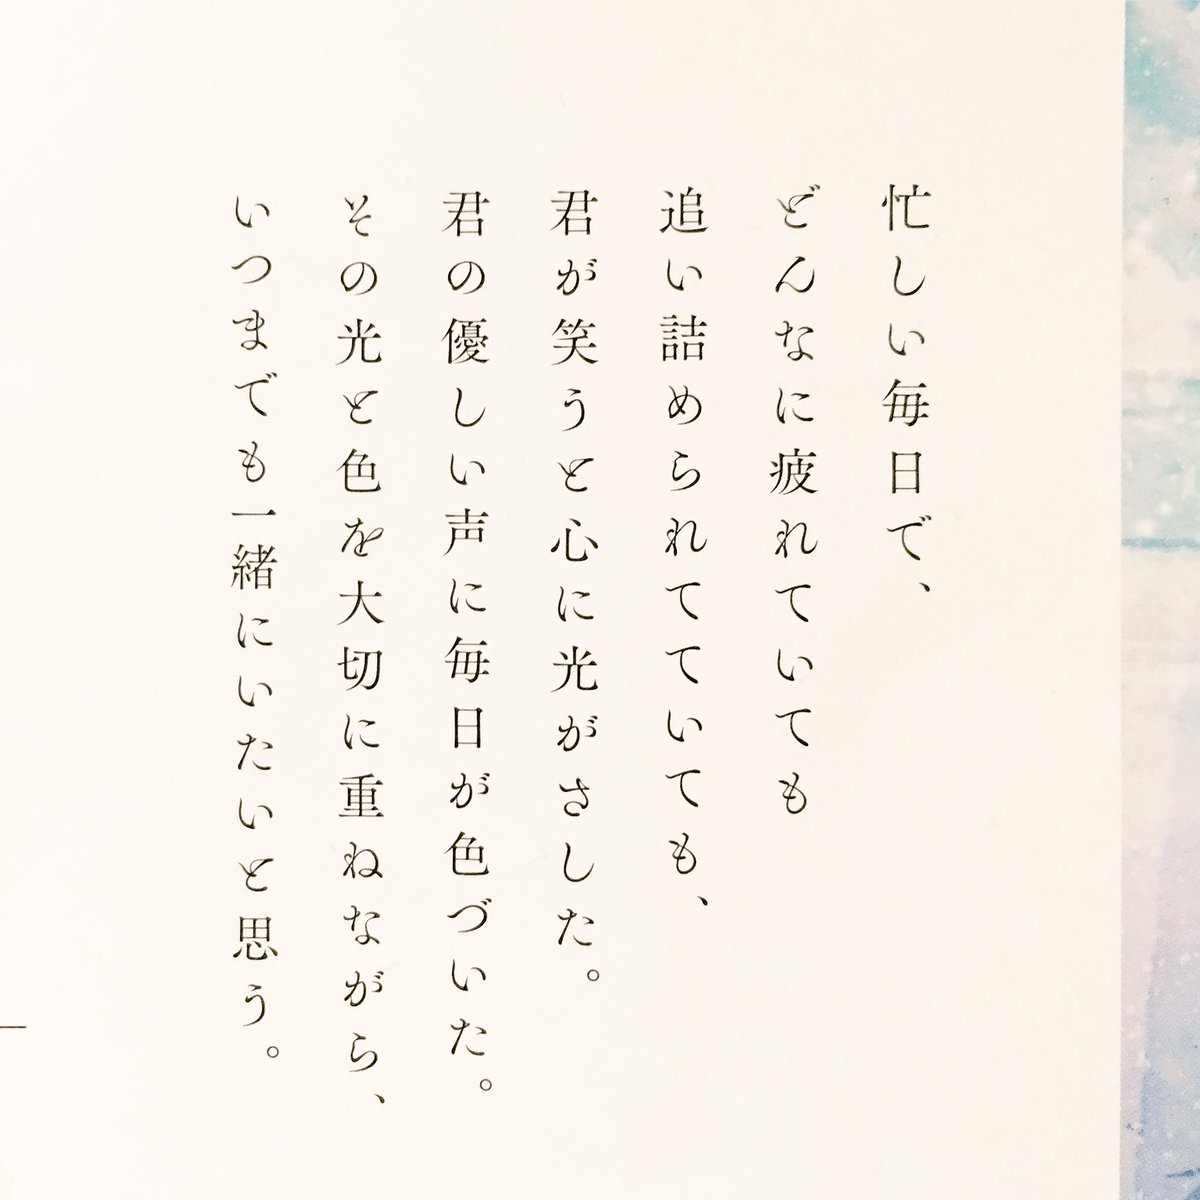 忙しい毎日で、
どんなに疲れていても
追い詰められてていても、
君が笑うと心に光がさした。
君の優しい声に毎日が色づいた。
その光と色を大切に重ねながら、
いつまでも一緒にいたいと思う。